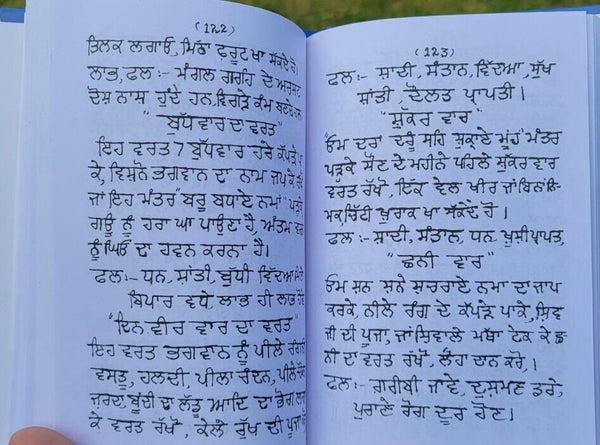 (122)
ਤਿਲਕ ਲਗਾਓ, ਮਿੱਠਾ ਫਰੂਟ ਖਾ ਸੱਕਦੇ ਹੋ
ਲਾਭ, ਫਲ:- ਮੰਗਲ ਗਰਹਿ ਦੇ
ਦੋਸ਼ ਨਾਸ ਹੁੰਦੇ ਹਨ, ਵਿਗੜੇ ਕੰਮ ਬਣਦੇ ਹਨ
"ਬੁੱਧਵਾਰ ਦਾ ਵਰਤ"
ਇਹ ਵਰਤ 7 ਬੁੱਧਵਾਰ ਹਰੇ ਕੱਪੜੇ ਪਾ
ਕੇ, ਵਿਸ਼ਨੋ ਭਗਵਾਨ ਦਾ ਨਾਮ ਜਪ ਕੇ ਰੱਖੋ
ਜਾਂ ਇਹ ਮੰਤਰ "ਬਰੂ ਬਧਾਏ ਨਮਾਂ" ਪੜ੍ਹਕੇ
ਗਊ ਨੂੰ ਹਰਾ ਘਾ ਪਾਉਣਾ ਹੈ, ਅੰਤਮ ਵਰਤ
ਨੂੰ ਘਿਓ ਦਾ ਹਵਨ ਕਰਨਾ ਹੈ।
ਫਲ:- ਧਨ, ਸ਼ਾਂਤੀ, ਬੁੱਧੀ ਵਿੱਦਿਆ
ਬਿਪਾਰ ਵਧੇ, ਲਾਭ ਹੀ ਲਾਭ
"ਦਿਨ ਵੀਰ ਵਾਰ ਦਾ ਵਰਤ"
ਇਹ ਵਰਤ ਭਗਵਾਨ ਨੂੰ ਪੀਲੇ ਰੰਗ
ਵਸਤੂ, ਹਲਦੀ, ਪੀਲਾ ਚੰਦਨ, ਪੀਲੇ
ਜ਼ਰਦਾ, ਬੂੰਦੀ ਦਾ ਲੱਡੂ ਆਦਿ ਦਾ ਭੋਗ ਲਗਾ
ਕੇ ਵਰਤ ਰੱਖੋ, ਕੇਲੇ ਰੁੱਖ ਦੀ ਪੂਜਾ
(123)
ਫਲ:- ਸ਼ਾਦੀ, ਸੰਤਾਨ, ਵਿੱਦਿਆ, ਸੁੱਖ
ਸ਼ਾਂਤੀ, ਦੌਲਤ ਪ੍ਰਾਪਤੀ।
"ਸ਼ੁੱਕਰ ਵਾਰ"
"ਓਮ ਦਰਾਂ ਦਰੂੰ ਸਹਿ ਸ਼ੁਕ੍ਰਾਏ ਮੂੰਹ" ਮੰਤਰ
ਪੜ੍ਹਕੇ ਸੌਣ ਦੇ ਮਹੀਨੇ ਪਹਿਲੇ ਸ਼ੁੱਕਰ ਵਾਰ
ਵਰਤ ਰੱਖੋ, ਇੱਕ ਵੇਲ ਖੀਰ ਜਾਂ ਬਿਨਾਂ ਨਿ-
ਮਕ, ਚਿੱਟੀ ਖ਼ੁਰਾਕ ਖਾ ਸੱਕਦੇ ਹੋ।
ਫਲ:- ਸ਼ਾਦੀ, ਸੰਤਾਨ, ਧਨ, ਖੁਸ਼ੀ ਪ੍ਰਾਪਤ,
"ਛਨੀ ਵਾਰ"
ਓਮ ਸ਼ਨ ਸ਼ਨੇ ਸ਼ਚਰਾਏ ਨਮਾ ਦਾ ਜਾਪ
ਕਰਕੇ, ਨੀਲੇ ਰੰਗ ਦੇ ਕੱਪੜੇ ਪਾਕੇ, ਸ਼ਿਵ
ਜੀ ਦੀ ਪੂਜਾ, ਜਾਂ ਸ਼ਿਵਾਲੇ ਮੱਥਾ ਟੇਕ ਕੇ ਛ
ਨੀ ਦਾ ਵਰਤ ਰੱਖੋ, ਲੋਹਾ ਦਾਨ ਕਰੋ,।
ਫਲ:- ਗ਼ਰੀਬੀ ਜਾਵੇ, ਦੁਸ਼ਮਣ ਡਰੇ,
ਪੁਰਾਣੇ ਰੋਗ ਦੂਰ ਹੋਣ।